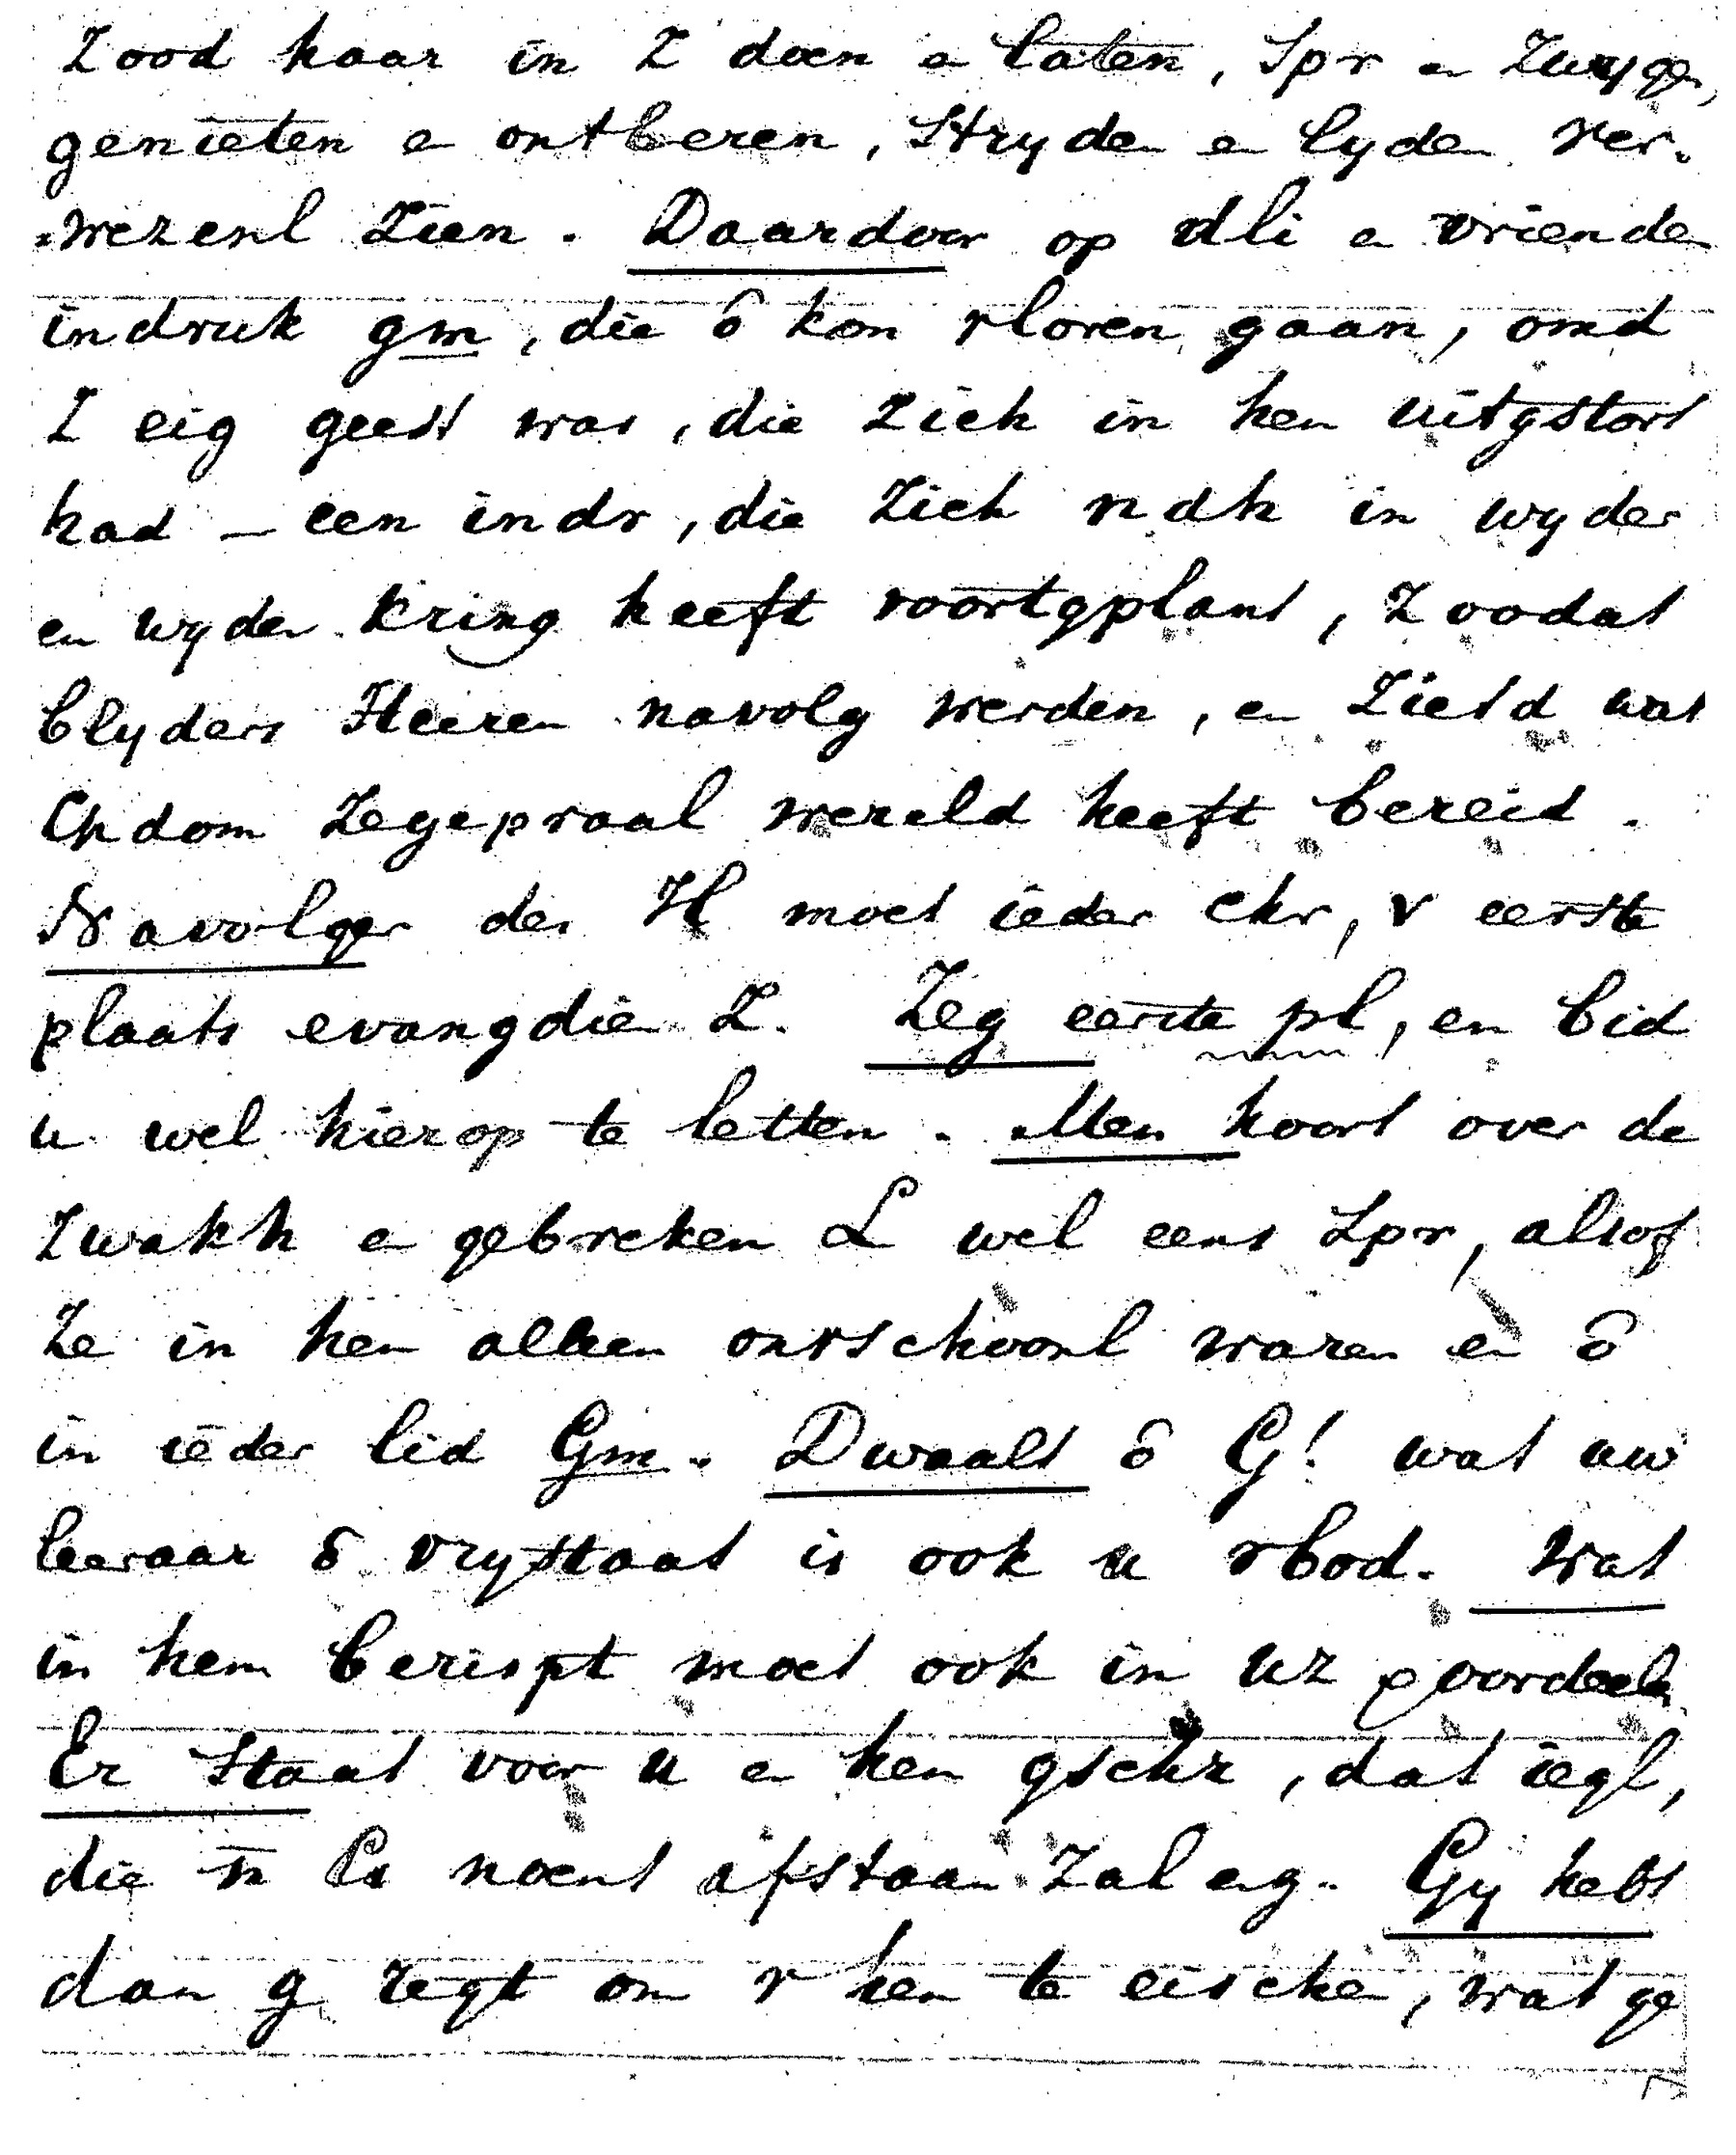 Zood haar in Z doen e laten, Spr en Zwygen,
genieten e ontberen, Stryden en lyden ver-
wezenl Zien. Daardoor op dli en vrienden
indruk gm, die ô kon vloren gaan, omd
Z eig geest was, die Zich in hen uitgstort
had - een indr, die Zich ndh in wyder
en wyder kring heeft voortgplant, Zoodat
blyders Heeren navolg werden, en Zietd wat
Chdom Zegepraal wereld heeft bereid.
Navolger des H moet ieder chr, v eerste
plaats evangdien Z. Zeg eerste pl, en bid
u wel hierop te letten. Men hoort over de
Zwakh e gebreken L wel eens Spr, alsof
Ze in hen alleen onvschoonl waren en ô
in ieder lid Gm. Dwaalt ô G! wat uw
leeraar ô vrystaat is ook u vbod. Wat
in hem berispt moet ook in uz voordeeln
Er Staat voor u en hen gschr, dat iegl,
die n Cs noemt afstaan Zal eng. Gy hebt
dan g regt om v hen te eischen, wat ge